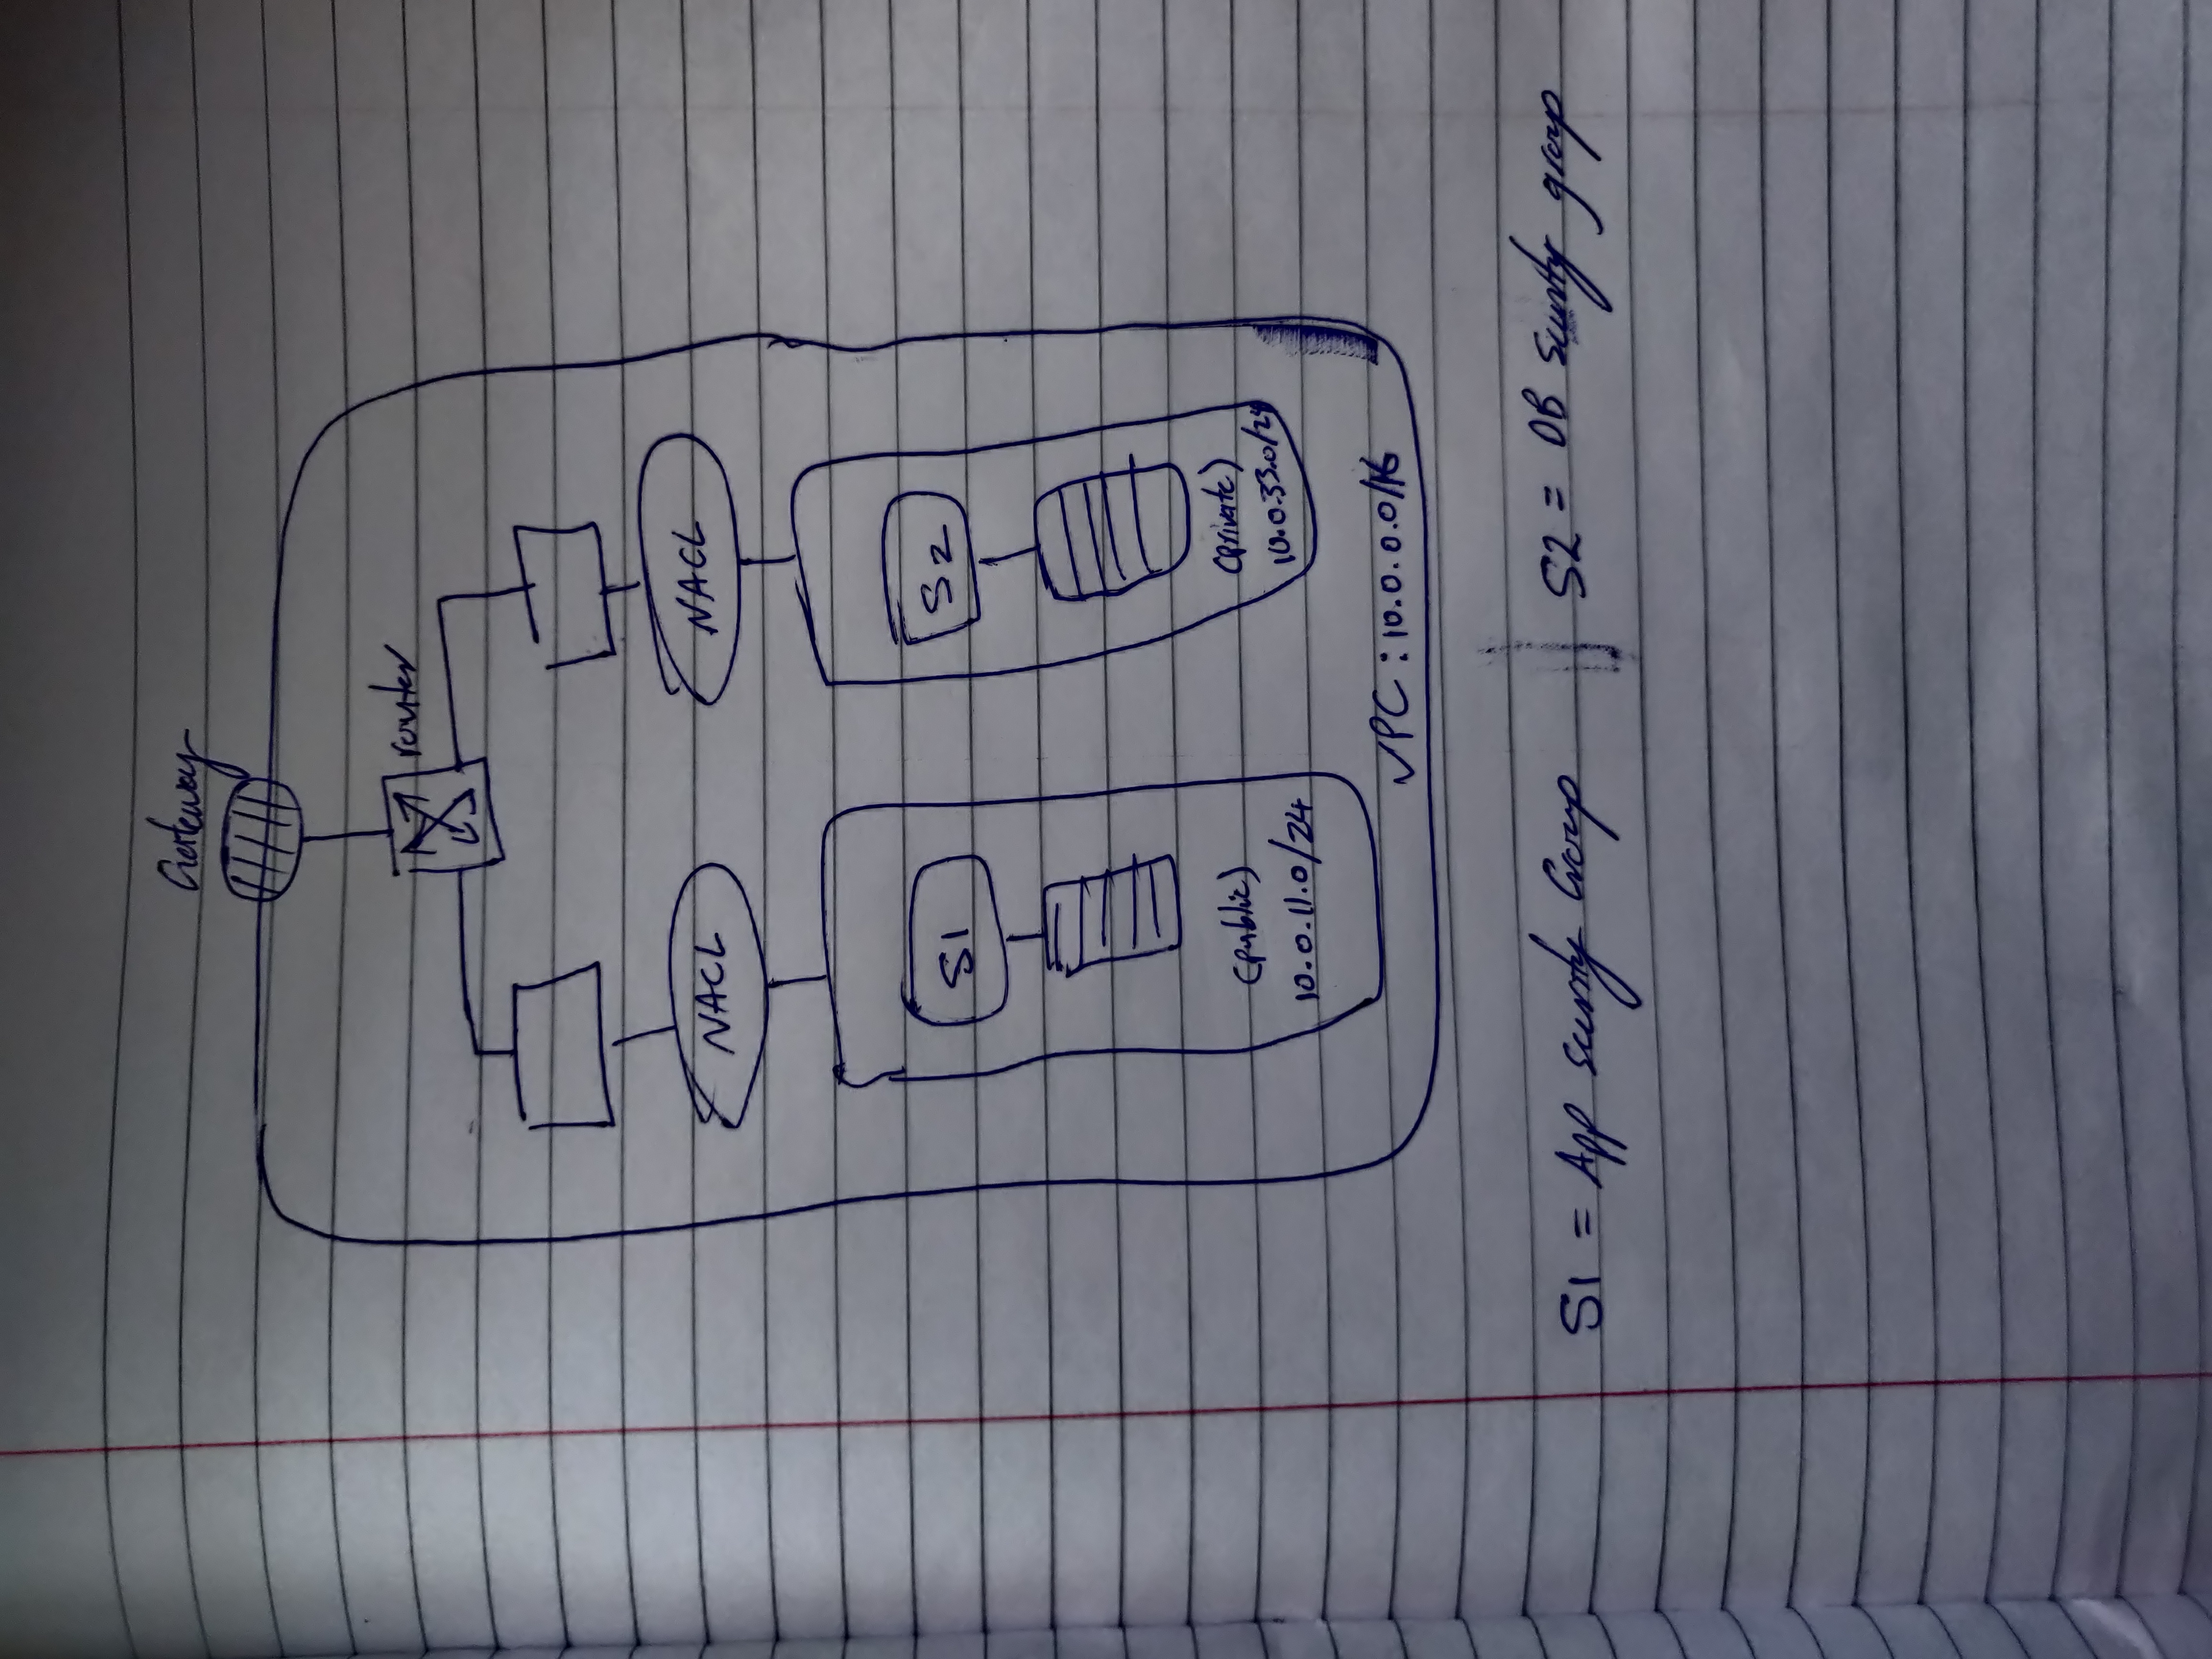 Gateway
router
NACL
NACL
S1
S2
(public)
10.0.11.0/24
(private)
10.0.33.0/24
VPC : 10.0.0.0/16
S1 = App security Group
S2 = DB security group